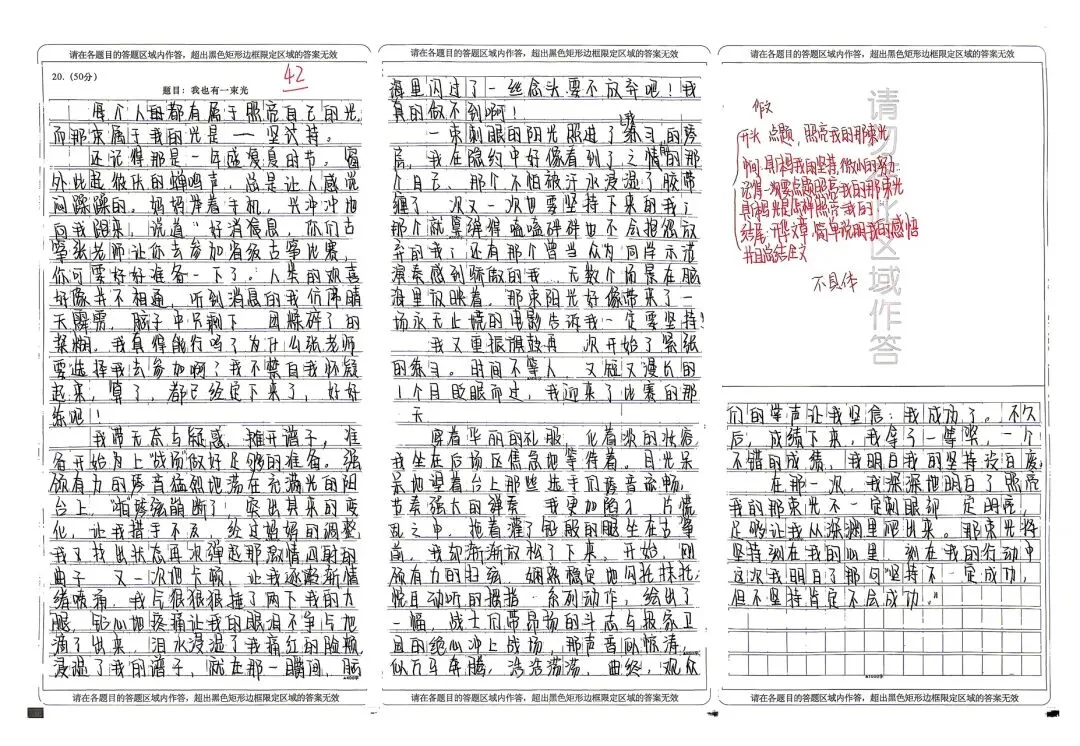 请在各题目的答题区域内作答，超出黑色矩形边框限定区域的答案无效
20.（50分）
42
题目：我也有一束光
每个人每都有属于照亮自己的光
而那束属于我的光是——坚持。
还记得那是一年盛夏的节，窗
外此起彼伏的蝉鸣声，总是让人感觉
闷躁躁的。妈妈弄着手机，兴冲冲地
向我跑来，说道"好消息，你们古
筝张老师让你去参加省级古筝比赛，
你可要好好准备一下了。人类的欢喜
好像并不相通，听到消息的我仿佛晴
天霹雳，脑子中只剩下 团爆碎了的
我真得能行吗？为什么张老师
要选择我去参加啊？我不禁自我怀疑
起来，算了，都已经定下来了，好好
练吧！
我带无奈与疑惑，摊开谱子，准
备开始为上"战场"做好足够的准备。强
有力的 音猛烈地荡在充满光的阳
台上，崩断了！突出其来的变
化，让我措手不及，经过妈妈的调整
我又找出状态再次弹起那激情四射的
曲子 又一次地卡顿，让我逐渐新情
绪喷涌，我气狠狠狠捶了两下我的大
腿，钻心地疼痛让我的眼泪不争气地
滴了出来，泪水浸湿了我痛红的脸颊，
浸湿了我的谱子，就在那一瞬间，脑
请在各题目的答题区域内作答，超出黑色矩形边框限定区域的答案无效
请在各题目的答题区域内作答，超出黑色矩形边框限定区域的答案无效
海里闪过了一丝念头要不放弃吧！我
真的做不到啊！
一束刺眼的阳光照进了练习的房
，我在隐约中好像看到了之 的那
个自己，那个不怕被汗水浸湿了胶带
缠了一次又一次也要坚持下来的我；
那个就算弹得磕磕碰碰也不会报怨放
弃的我；还有那个曾当众为同学示范
演奏感到骄傲的我…无数个场景在脑
海里放映着，那束阳光好像带来了一
场永无止境的电影告诉我一定要坚持！
我又重振旗鼓再 次开始了紧张
的练习。时间不等人，又短又漫长的
1个月眨眼而过，我迎来了比赛的那
天
穿着华丽的礼服，化着淡的妆容
我坐在后场区焦急地等待着。目光呆
呆地望着台上那些选手们 音流畅，
节奏强大的弹奏 我更加陷才 片慌
乱之中，拖着灌了铅般的腿坐在古筝
前，我却渐渐放松了下来，开始，刚
有力的扫弦 娴熟稳定地勾托抹托，
悦耳动听的摇指 系列动作，绘出了
一幅，战士们带昂扬的斗志与报家卫
国的绝心冲上战场，那声音似惊涛，
似万马奔腾，浩浩荡荡，曲终，观众
请在各题目的答题区域内作答，超出黑色矩形边框限定区域的答案无效
请在各题目的答题区域内作答，超出黑色矩形边框限定区域的答案无效
作文
开头 点题，照亮我的那束光
中间 具体写我的坚持，微小的努力
记得一次要点题照亮我的那束光
具体写光是怎样照亮我的
结尾 升华文章 简单说明我的感悟
并且总结全文
不具体
请勿在此区域作答
们的掌声让我坚信：我成功了。不久
后，成绩下来，我拿了一等奖，一个
不错的成绩，我明白我的坚持没白废，
在那一次，我深深地明白了照亮
我的那束光不一定刺眼却 定明亮，
足够让我从深渊里爬出来。那束光将
坚持刻在我的心里 刻在我的行动中
这次我明白了那句"坚持不一定成功，
但不坚持肯定不会成功。"
请在各题目的答题区域内作答，超出黑色矩形边框限定区域的答案无效